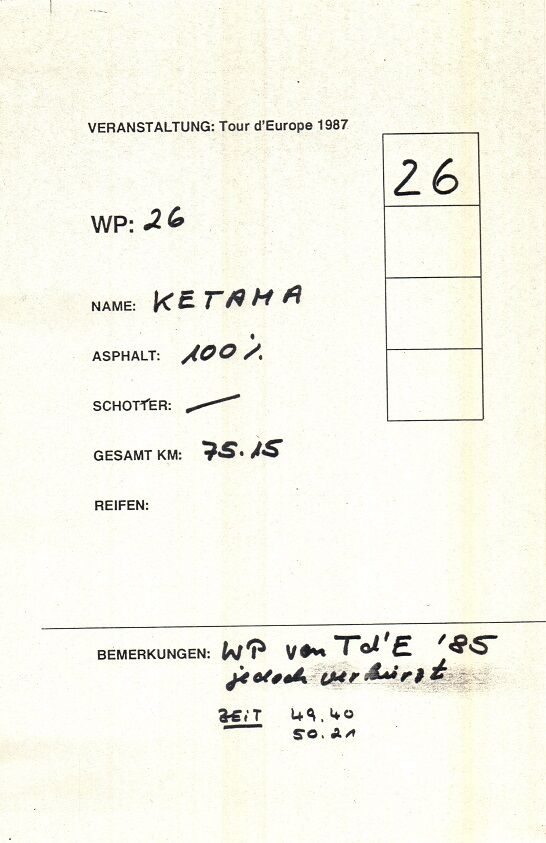 VERANSTALTUNG: Tour d'Europe 1987
26
WP: 26
NAME: KETAMA
ASPHALT: 100 %
SCHOTTER: —
GESAMT KM: 75.15
REIFEN:
BEMERKUNGEN: WP von Td'E '85
jedoch verkürzt
ZEIT 49.40
50.21